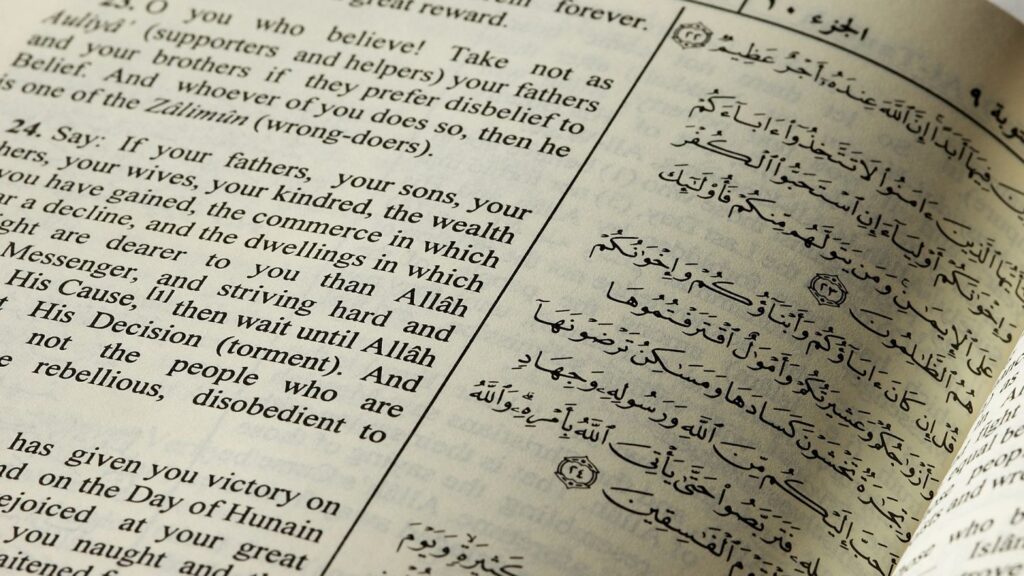 الجزء ١٠
٩
forever.
great reward.
23. O you who believe! Take not as
Auliyâ' (supporters and helpers) your fathers
and your brothers if they prefer disbelief to
Belief. And whoever of you does so, then he
is one of the Zâlimûn (wrong-doers).
24. Say: If your fathers, your sons, your
your wives, your kindred, the wealth
you have gained, the commerce in which
a decline, and the dwellings in which
are dearer to you than Allâh
Messenger, and striving hard and
His Cause,[1] then wait until Allâh
His Decision (torment). And
not the people who are
rebellious, disobedient to
has given you victory on
on the Day of Hunain
at your great
you naught and
فِيهَآ أَبَدًا إِنَّ ٱللَّهَ عِندَهُۥٓ أَجْرٌ عَظِيمٌ ٢٢
ٱلَّذِينَ ءَامَنُوا۟ لَا تَتَّخِذُوٓا۟ ءَابَآءَكُمْ
وَإِخْوَٰنَكُمْ أَوْلِيَآءَ إِنِ ٱسْتَحَبُّوا۟ ٱلْكُفْرَ
عَلَى ٱلْإِيمَٰنِ وَمَن يَتَوَلَّهُم مِّنكُمْ فَأُو۟لَٰٓئِكَ
هُمُ ٱلظَّٰلِمُونَ ٢٣
قُلْ إِن كَانَ ءَابَآؤُكُمْ وَأَبْنَآؤُكُمْ وَإِخْوَٰنُكُمْ
وَأَزْوَٰجُكُمْ وَعَشِيرَتُكُمْ وَأَمْوَٰلٌ ٱقْتَرَفْتُمُوهَا
وَتِجَٰرَةٌ تَخْشَوْنَ كَسَادَهَا وَمَسَٰكِنُ تَرْضَوْنَهَآ
أَحَبَّ إِلَيْكُم مِّنَ ٱللَّهِ وَرَسُولِهِۦ وَجِهَادٍ
فَتَرَبَّصُوا۟ حَتَّىٰ يَأْتِىَ ٱللَّهُ بِأَمْرِهِۦ وَٱللَّهُ
ٱلْفَٰسِقِينَ ٢٤
كَثِيرَةٍ وَيَوْمَ
people
and
who
Islâm